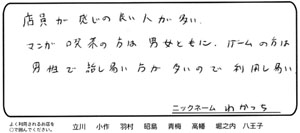 店員が感じの良い人が多い。
マンガ喫茶の方は男女ともに、ゲームの方は
男性で話し易い方が多いので利用し易い。
ニックネーム わかっち
よく利用されるお店を
○で囲んでください。 立川 小作 羽村 昭島 青梅 高幡 堀之内 八王子